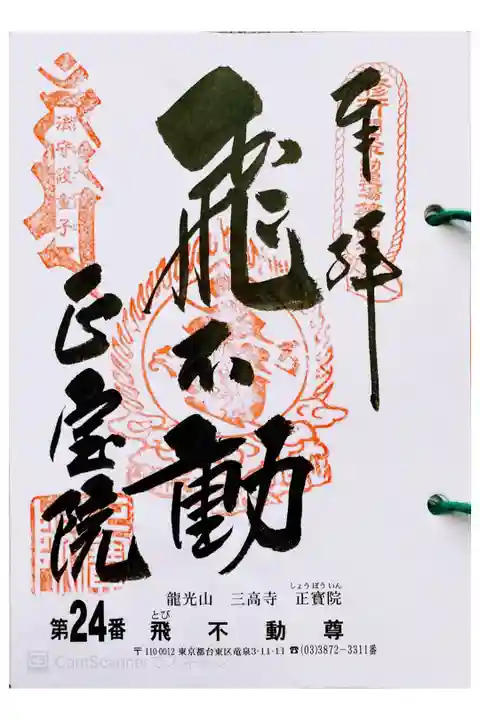 奉拝
飛不動
正宝院
満守護童子
龍光山 三高寺 正寳院
しょうぼういん
第24番 飛不動尊
とび
〒110-0012 東京都台東区竜泉3-11-11 ☎(03)3872-3311番
CamScanner